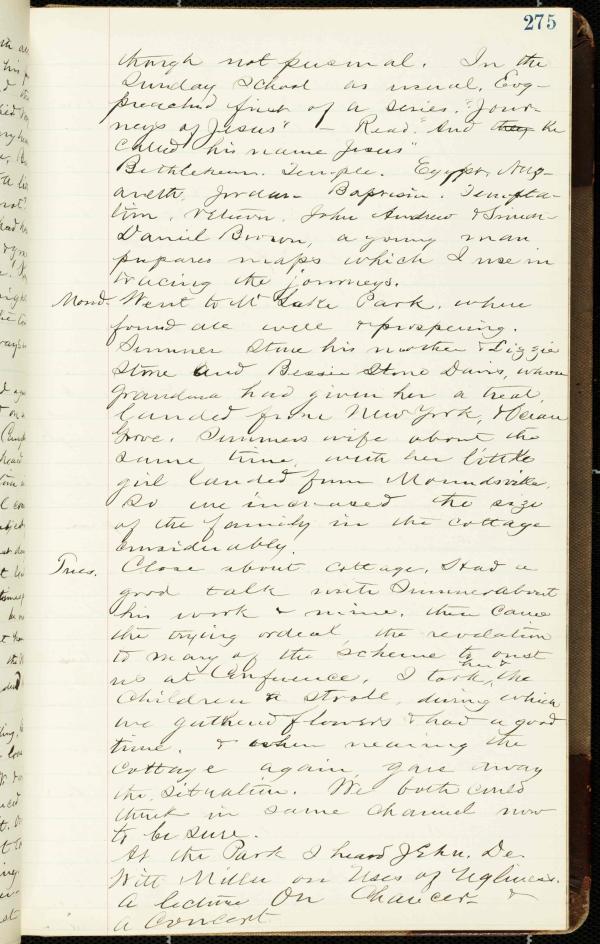 275
though not personal. In the
Sunday School as usual. Evg-
preached first of a series. "Jour-
neys of Jesus" - Read. "And they he
called his name Jesus"
Bethlehem. Temple. Egypt, Naz-
areth, Jordan Baptism. Tempta-
tion, return. John Andrew & Simon-
Daniel Brown, a young man
prepares maps which I use in
tracing the journeys.
Mond. Went to Mt Lake Park, where
found all well & prospering.
Sumner Stone his mother & Lizzie
Stone and Bessie Stone Davis, whose
Grandma had given her a treat,
landed from New York, & Ocean
Grove. Sumners wife about the
same time, with her little
girl landed from Moundsville.
So we increased the size
of the family in the cottage
considerably.
Tues. Close about cottage. Had a
good talk with Sumner about
his work & mine. then came
the trying ordeal, the revelation
to Mary of the scheme to oust
us at Conference. I took her & the
Children a stroll, during which
we gathered flowers & had a good
time. & when nearing the
cottage again, gave away
the situation. We both could
think in same channel now
to be sure.
At the Park I heard John. De
Witt Miller on Uses of Ugliness.
a lecture On Chaucer - &
a Concert